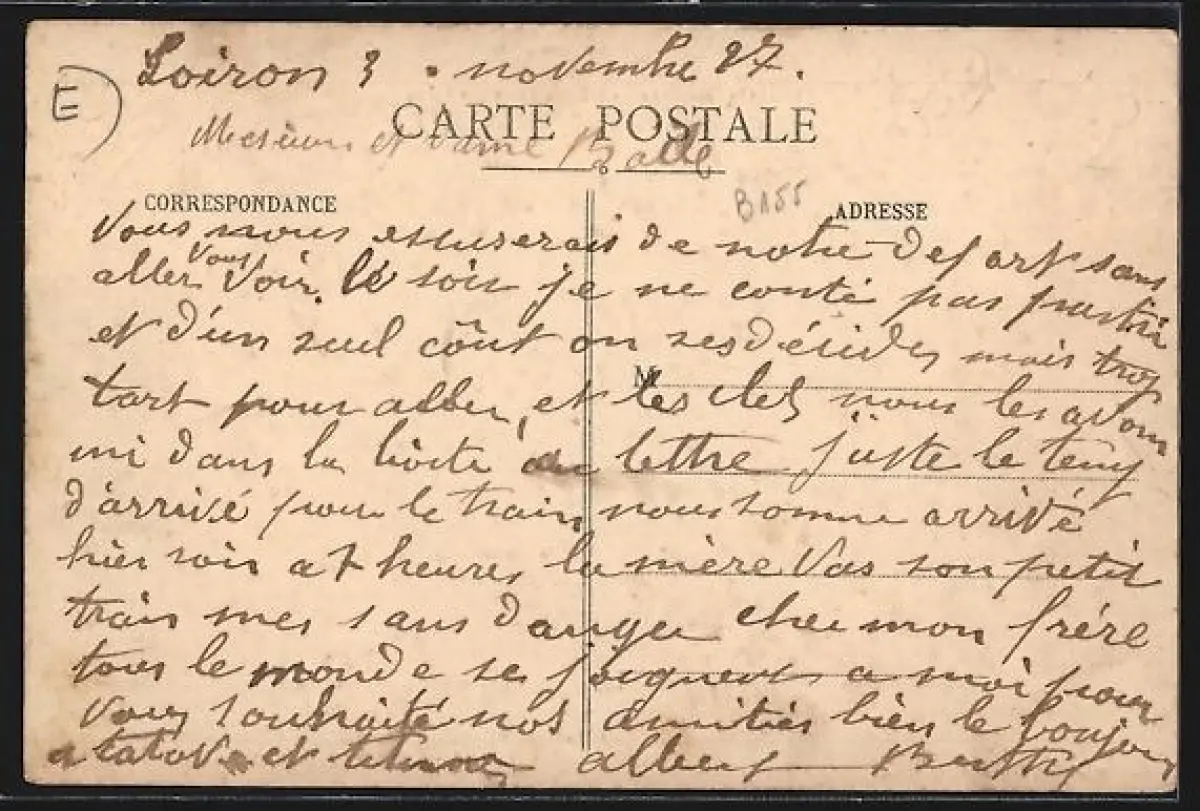 Loiron 3 novembre 27.
E
CARTE POSTALE
Messieur et Dame Balle
B155
CORRESPONDANCE
ADRESSE
Vous nous essuserais de notre depart sans
aller vous voir. le soir je ne conté pas partir
et d'un seul coût on ses décidés mais trop
tart pour aller, et les cles nous les avons
mi dans la boite au lettre juste le temp
d'arrivé pour le train nous somme arrivé
hier soir a 7 heures la mère vas son petit
train mes sans danger chez mon frére
tous le monde se joignent a moi pour
vous souhaité nos amitiés bien le bonjour
a et albert